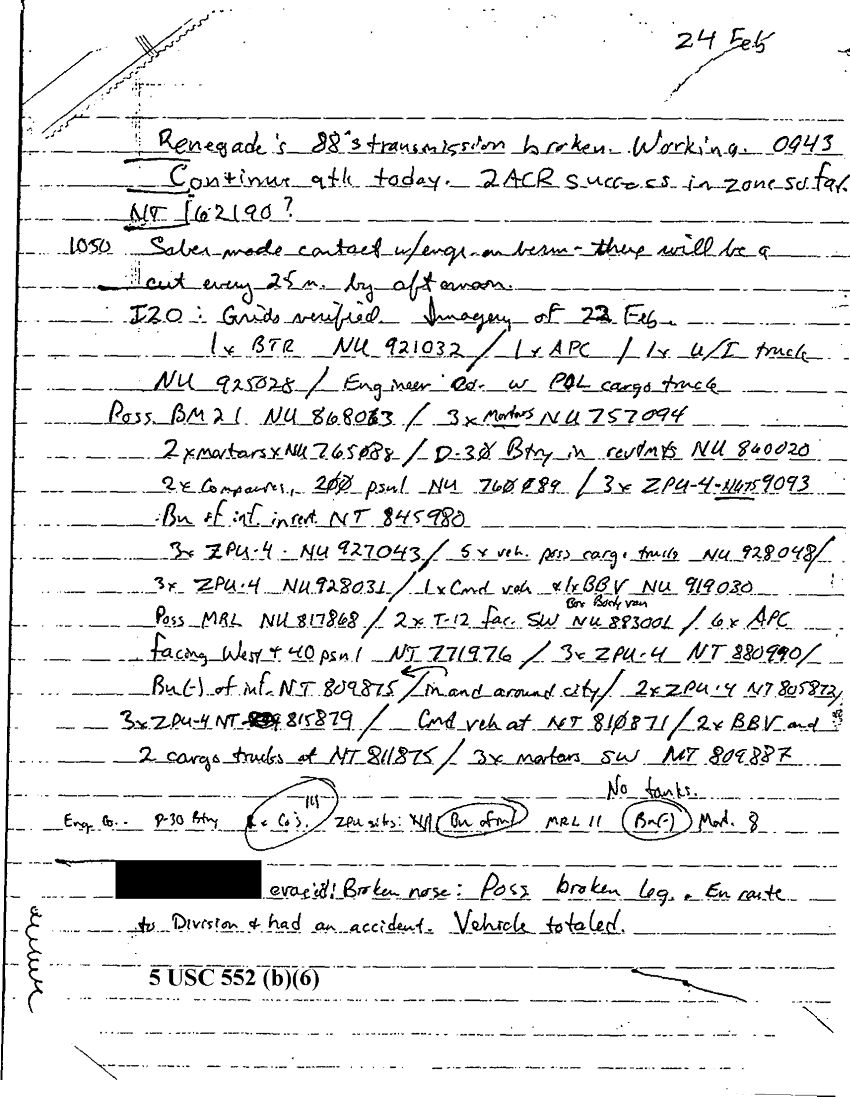 24 Feb
Renegade's 88's transmission broken. Working. 0943
Continue atk today. 2ACR success in zone so far.
NT 162190?
1050 Saber made contact w/engr on berm - there will be a
cut every 25 m. by afternoon.
IZO: Grids verified. Imagery of 22 Feb.
1x BTR NU 921032 / 1x APC / 1x U/I truck
NU 925028 / Engineer Co. w POL cargo truck
Poss BM21 NU 868063 / 3x Mortars NU 757094
2x mortars x NU 765088 / D-30 Btry in revtmts NU 860020
2x Companies, 200 psnl NU 760089 / 3x ZPU-4 - NU759093
Bn of inf insert NT 845980
3x ZPU-4 - NU 927043 / 5x veh. poss cargo truck NU 928048/
3x ZPU-4 NU928031 / 1x Cmd veh & 1x BBV NU 919030
Box Body van
Poss MRL NU 817868 / 2x T-12 fac. SW NU 883001 / 6x APC
facing West + 40 psnl NT 771976 / 3x ZPU-4 NT 880990/
Bn(-) of inf. NT 809875 / in and around city / 2x ZPU-4 NT 805872/
3x ZPU-4 NT 815879 / Cmd veh at NT 810871 / 2x BBV and
2 cargo trucks at NT 811875 / 3x mortars SW NT 809887
No tanks.
Eng. Co. - D-30 Btry Co's. ZPU sites: Bn of inf MRL 11 Bn(-) Mort. 8
evac'd! Broken nose: Poss broken leg. En route
to Division & had an accident. Vehicle totaled.
5 USC 552 (b)(6)